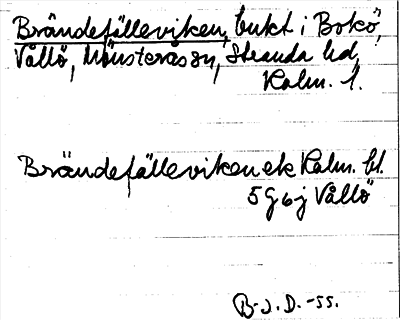 Brändefälleviken, bukt i Bokö,
Vållö, Mönsterås sn, Stranda hd,
Kalm. l.
Brändefälleviken ek Kalm. bl.
5 G 6 j Vållö
B-J. D. -55.